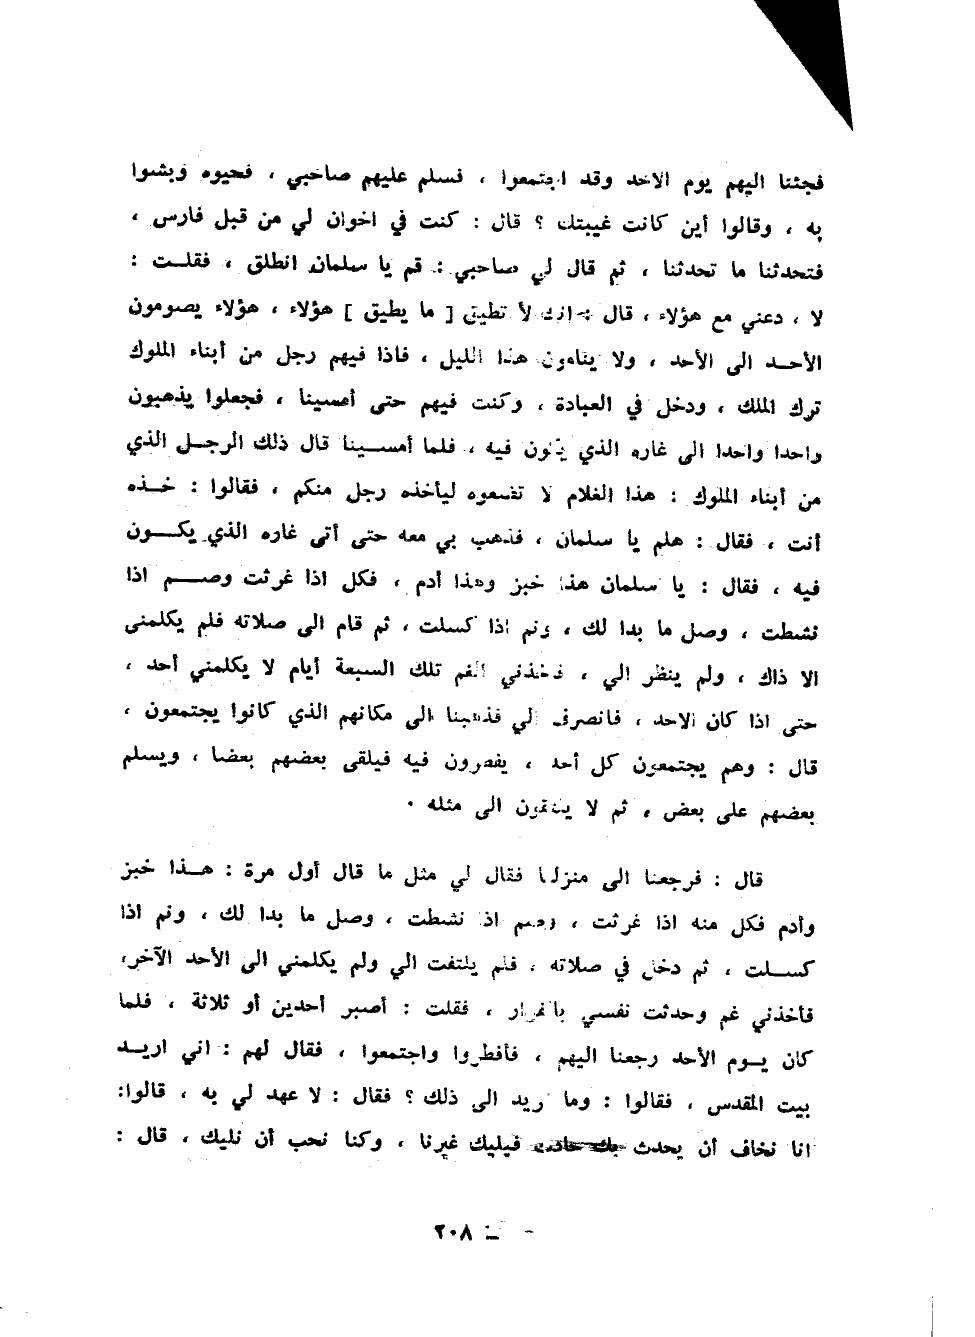 فجئنا اليهم يوم الاحد وقد اجتمعوا ، فسلم عليهم صاحبي ، فحيوه وبشوا
به ، وقالوا أين كانت غيبتك ؟ قال : كنت في اخوان لي من قبل فارس ،
فتحدثنا ما تحدثنا ، ثم قال لي صاحبي : قم يا سلمان انطلق ، فقلت :
لا ، دعني مع هؤلاء ، قال : انك لا تطيق [ ما يطيق ] هؤلاء ، هؤلاء يصومون
الأحد الى الأحد ، ولا ينامون هذا الليل ، فاذا فيهم رجل من أبناء الملوك
ترك الملك ، ودخل في العبادة ، وكنت فيهم حتى أمسينا ، فجعلوا يذهبون
واحدا واحدا الى غاره الذي يكون فيه ، فلما أمسينا قال ذلك الرجل الذي
من أبناء الملوك : هذا الغلام لا تضيعوه ليأخذه رجل منكم ، فقالوا : خذه
أنت ، فقال : هلم يا سلمان ، فذهب بي معه حتى أتى غاره الذي يكون
فيه ، فقال : يا سلمان هذا خبز وهذا أدم ، فكل اذا غرثت وصم اذا
نشطت ، وصل ما بدا لك ، ونم اذا كسلت ، ثم قام الى صلاته فلم يكلمني
الا ذاك ، ولم ينظر الي ، فأخذني الغم تلك السبعة أيام لا يكلمني أحد ،
حتى اذا كان الاحد ، فانصرف الي فذهبنا الى مكانهم الذي كانوا يجتمعون ،
قال : وهم يجتمعون كل أحد ، يفطرون فيه فيلقى بعضهم بعضا ، ويسلم
بعضهم على بعض ، ثم لا يلتقون الى مثله ٠
قال : فرجعنا الى منزلنا فقال لي مثل ما قال أول مرة : هذا خبز
وأدم فكل منه اذا غرثت ، وصم اذا نشطت ، وصل ما بدا لك ، ونم اذا
كسلت ، ثم دخل في صلاته ، فلم يلتفت الي ولم يكلمني الى الأحد الآخر،
فأخذني غم وحدثت نفسي بالفرار ، فقلت : أصبر أحدين أو ثلاثة ، فلما
كان يوم الأحد رجعنا اليهم ، فأفطروا واجتمعوا ، فقال لهم : اني اريد
بيت المقدس ، فقالوا : وما تريد الى ذلك ؟ فقال : لا عهد لي به ، قالوا:
انا نخاف أن يحدث بك حادث فيليك غيرنا ، وكنا نحب أن نليك ، قال :
- ٢٠٨ -